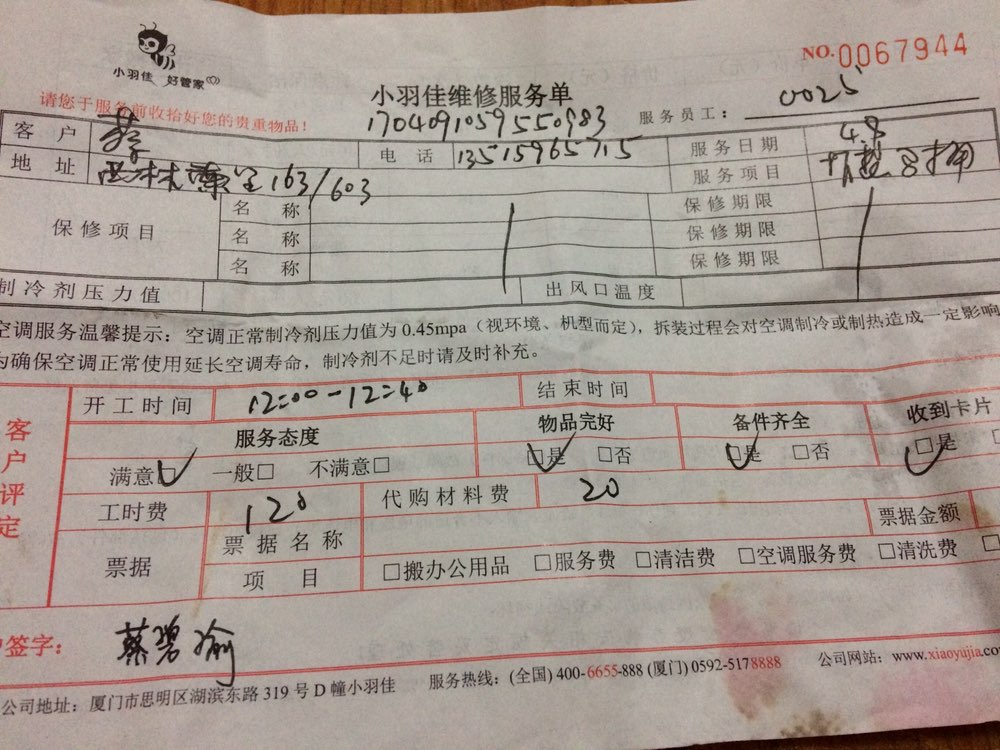 小羽佳 好管家
NO.0067944
请您于服务前收拾好您的贵重物品!
小羽佳维修服务单
服务员工: 0025
1704091059550983
客户 蔡 电话 13515965715 服务日期 4.8
地址 163/603 服务项目
保修项目 名称 保修期限
名称 保修期限
名称 保修期限
制冷剂压力值 出风口温度
空调服务温馨提示:空调正常制冷剂压力值为0.45mpa(视环境、机型而定),拆装过程会对空调制冷或制热造成一定影响
为确保空调正常使用延长空调寿命,制冷剂不足时请及时补充。
客户评定
开工时间 12:00-12:40 结束时间
服务态度 物品完好 备件齐全 收到卡片
满意☑ 一般□ 不满意□ ☑是 □否 ☑是 □否 ☑是
工时费 120 代购材料费 20
票据 票据名称 票据金额
项目 □搬办公用品 □服务费 □清洁费 □空调服务费 □清洗费
户签字: 蔡碧瑜
公司地址:厦门市思明区湖滨东路319号D幢小羽佳 服务热线:(全国)400-6655-888 (厦门) 0592-5178888 公司网站:www.xiaoyujia.co